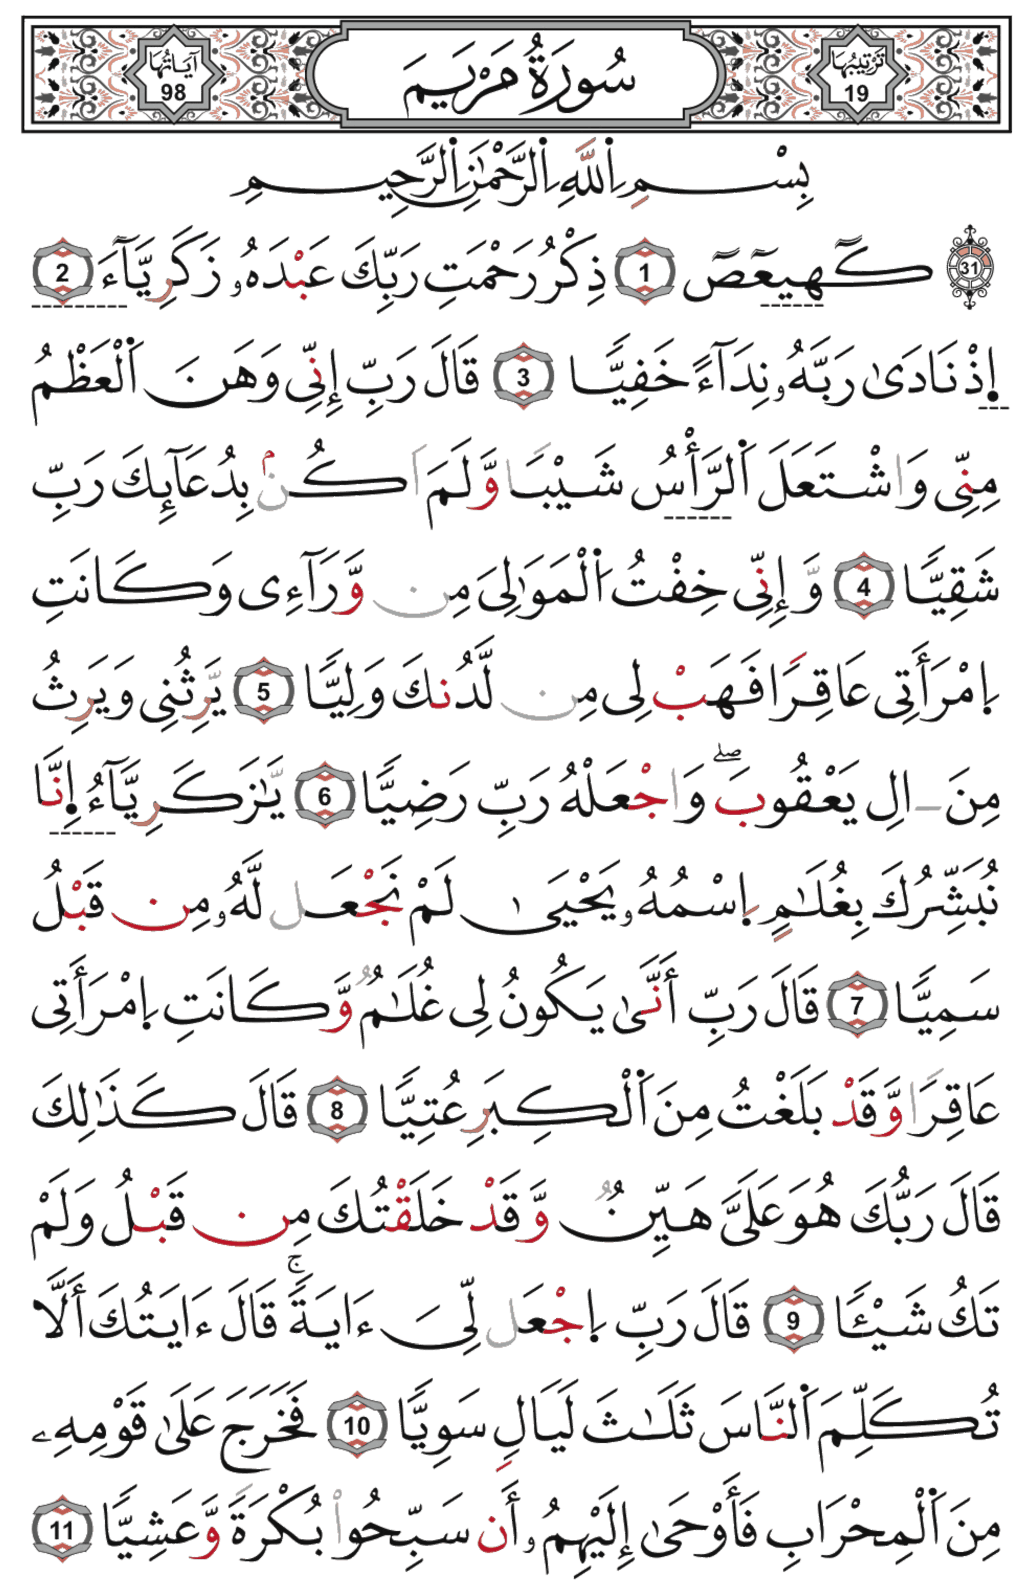 تَرْتِيبُهَا 19 سُورَةُ مَرْيَمَ آيَاتُهَا 98
بِسْمِ اِ۬للَّهِ اِ۬لرَّحْمَٰنِ اِ۬لرَّحِيمِ
31 كَٓهيعَٓصَٓ 1 ذِكْرُ رَحْمَتِ رَبِّكَ عَبْدَهُۥ زَكَرِيَّآءَ 2
اِ۪ذْ نَادَىٰ رَبَّهُۥ نِدَآءً خَفِيّٗا 3 قَالَ رَبِّ إِنِّي وَهَنَ اَ۬لْعَظْمُ
مِنِّي وَاشْتَعَلَ اَ۬لرَّأْسُ شَيْبٗا وَّلَمَ اَكُنۢ بِدُعَآئِكَ رَبِّ
شَقِيّٗا 4 وَّإِنِّي خِفْتُ اُ۬لْمَوَٰلِيَ مِنْ وَّرَآءِي وَكَانَتِ
اِ۪مْرَأَتِي عَاقِرٗا فَهَبْ لِي مِن لَّدُنكَ وَلِيّٗا 5 يَّرِثُنِي وَيَرِثُ
مِنَ ـ۬الِ يَعْقُوبَۖ وَاجْعَلْهُ رَبِّ رَضِيّٗا 6 يَّٰزَكَرِيَّآءُ اِ۪نَّا
نُبَشِّرُكَ بِغُلَٰمٍ اِ۪سْمُهُۥ يَحْيَىٰ لَمْ نَجْعَل لَّهُۥ مِن قَبْلُ
سَمِيّٗا 7 قَالَ رَبِّ أَنَّىٰ يَكُونُ لِي غُلَٰمٞ وَّكَانَتِ اِ۪مْرَأَتِي
عَاقِرٗا وَّقَدْ بَلَغْتُ مِنَ اَ۬لْكِبَرِ عُتِيّٗا 8 قَالَ كَذَٰلِكَ
قَالَ رَبُّكَ هُوَ عَلَيَّ هَيِّنٞ وَّقَدْ خَلَقْتُكَ مِن قَبْلُ وَلَمْ
تَكُ شَيْـٔٗا 9 قَالَ رَبِّ اِ۪جْعَل لِّيَ ءَايَةٗۚ قَالَ ءَايَتُكَ أَلَّا
تُكَلِّمَ اَ۬لنَّاسَ ثَلَٰثَ لَيَالٖ سَوِيّٗا 10 فَخَرَجَ عَلَىٰ قَوْمِهِۦ
مِنَ اَ۬لْمِحْرَابِ فَأَوْحَىٰ إِلَيْهِمُۥ أَن سَبِّحُواْ بُكْرَةٗ وَّعَشِيّٗا 11